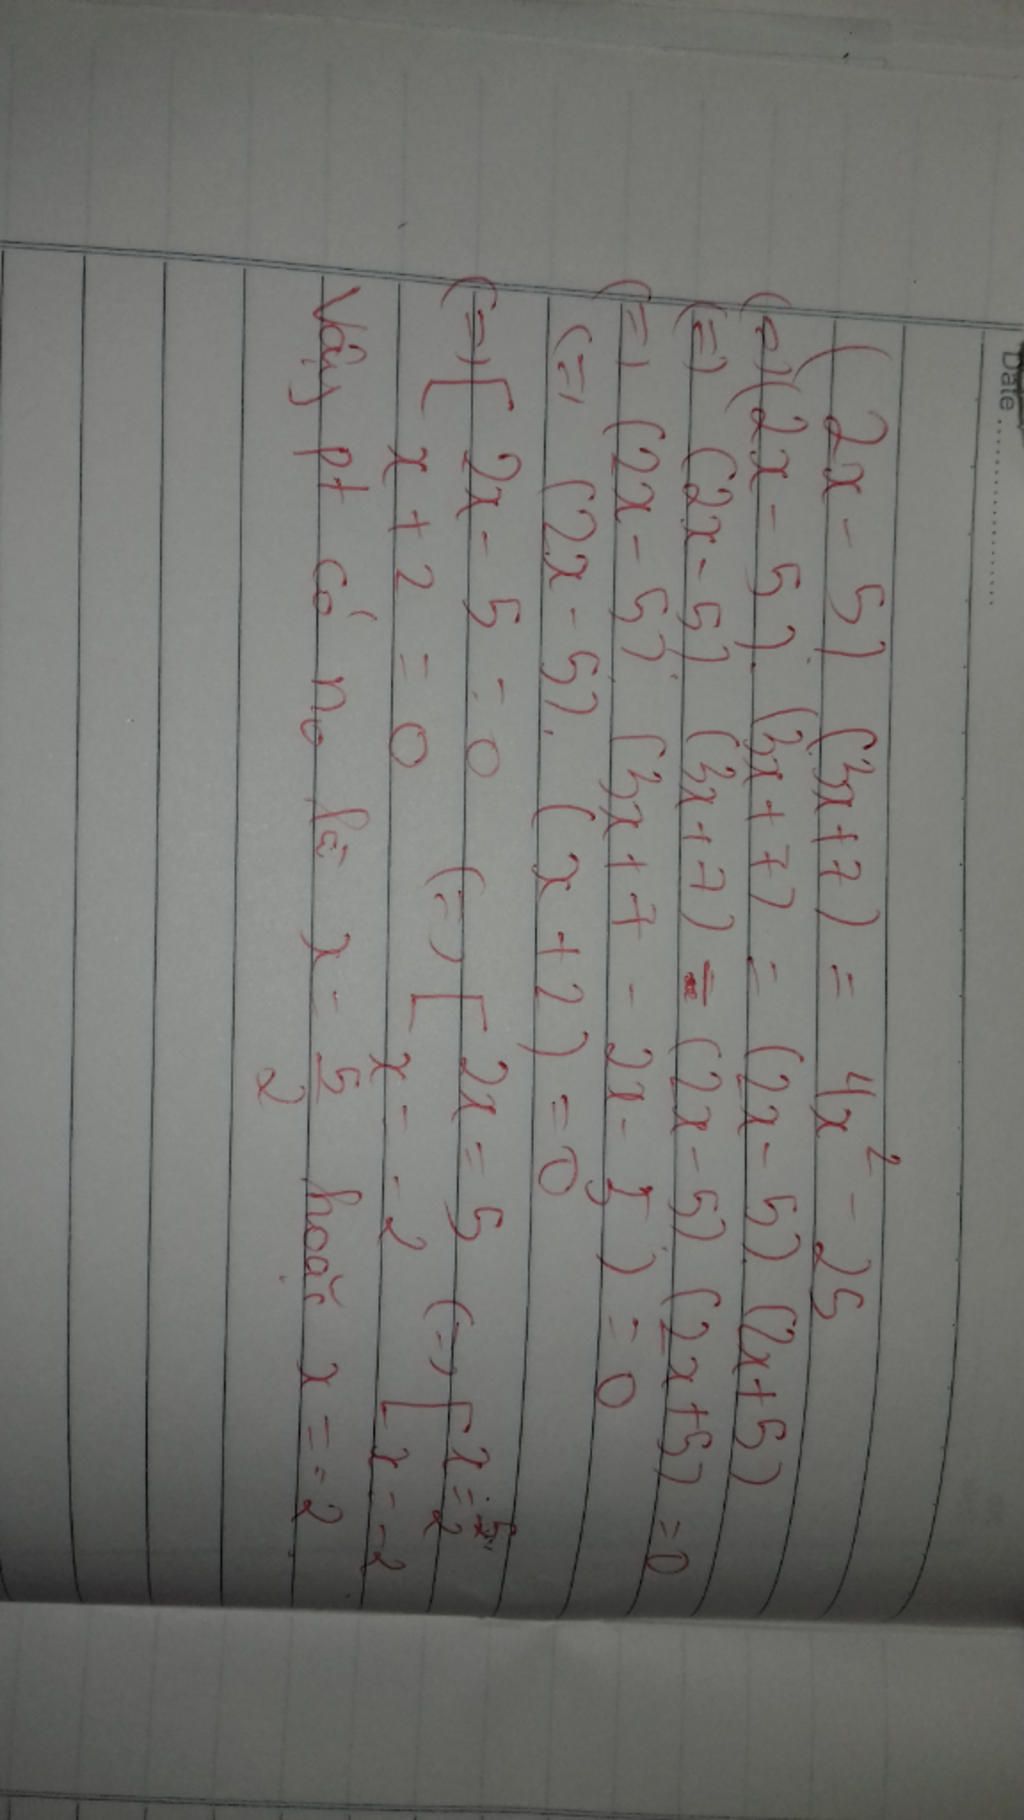 Date
(2x - 5) (3x + 7) = 4x² - 25
(=) (2x - 5). (3x + 7) = (2x - 5). (2x + 5)
(=) (2x - 5) (3x + 7) = (2x - 5) (2x + 5) = 0
(=) (2x - 5). (3x + 7 - 2x - 5) = 0
(=) (2x - 5). (x + 2) = 0
(=) [ 2x - 5 = 0 (=) [ 2x = 5 (=) [ x = 5/2
x + 2 = 0 x = -2 x = -2
Vậy pt có no là x = 5/2 hoặc x = -2